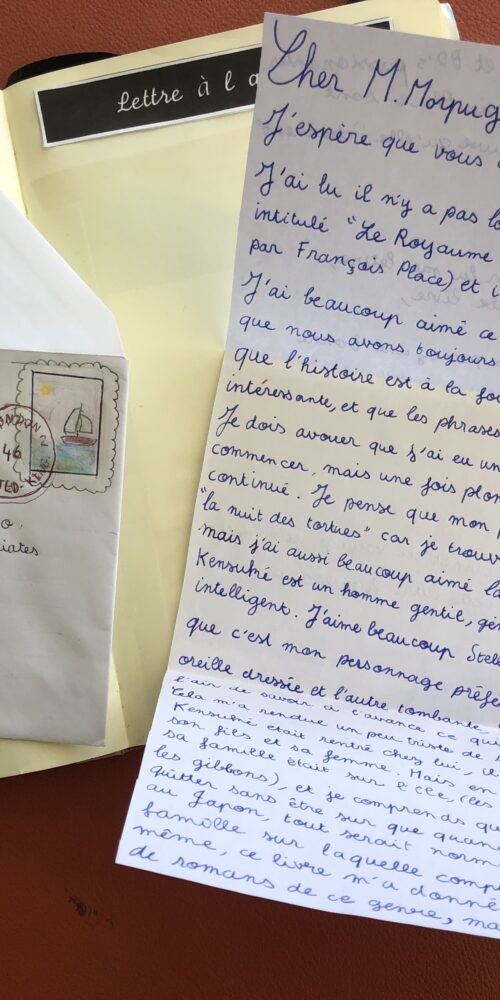 Lettre à l a
LONDON 2
46
TED-KING
o,
iates
Cher M. Morpug
J'espère que vous
J'ai lu il n'y a pas lo
intitulé "Le Royaume
par François Place) et i
J'ai beaucoup aimé ce
que nous avons toujours
que l'histoire est à la foi
intéressante, et que les phrases
Je dois avouer que j'ai eu un
commencer, mais une fois plon
continué. Je pense que mon p
"la nuit des tortues" car je trouv
mais j'ai aussi beaucoup aimé la
Kensuké est un homme gentil, gén
intelligent. J'aime beaucoup Stell
que c'est mon personnage préfé
oreille dressée et l'autre tombante
l'air de savoir à l'avance ce qu
Cela m'a rendue un peu triste de
Kensuké était rentré chez lui, il
son fils et sa femme. Mais en
sa famille était sur l'île, (les
les gibbons), et je comprends qu
quitter sans être sur que quan
au Japon, tout serait norm
famille sur laquelle comp
même, ce livre m'a donné
de romans de ce genre, ma